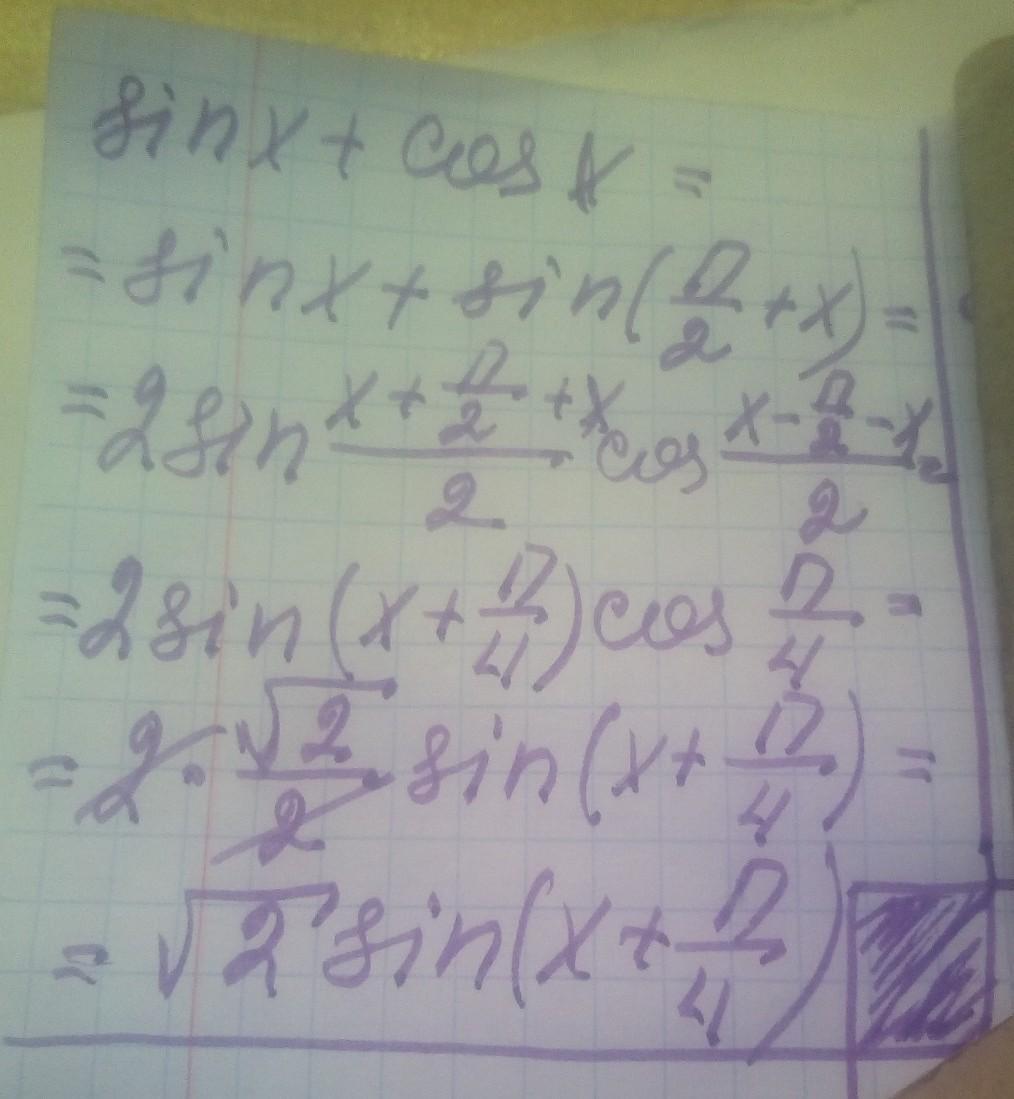 sin x + cos x =
= sin x + sin(π/2 + x) =
= 2 sin (x + π/2 + x)/2 cos (x - π/2 - x)/2 =
= 2 sin(x + π/4) cos π/4 =
= 2 · √2/2 sin(x + π/4) =
= √2 sin(x + π/4)